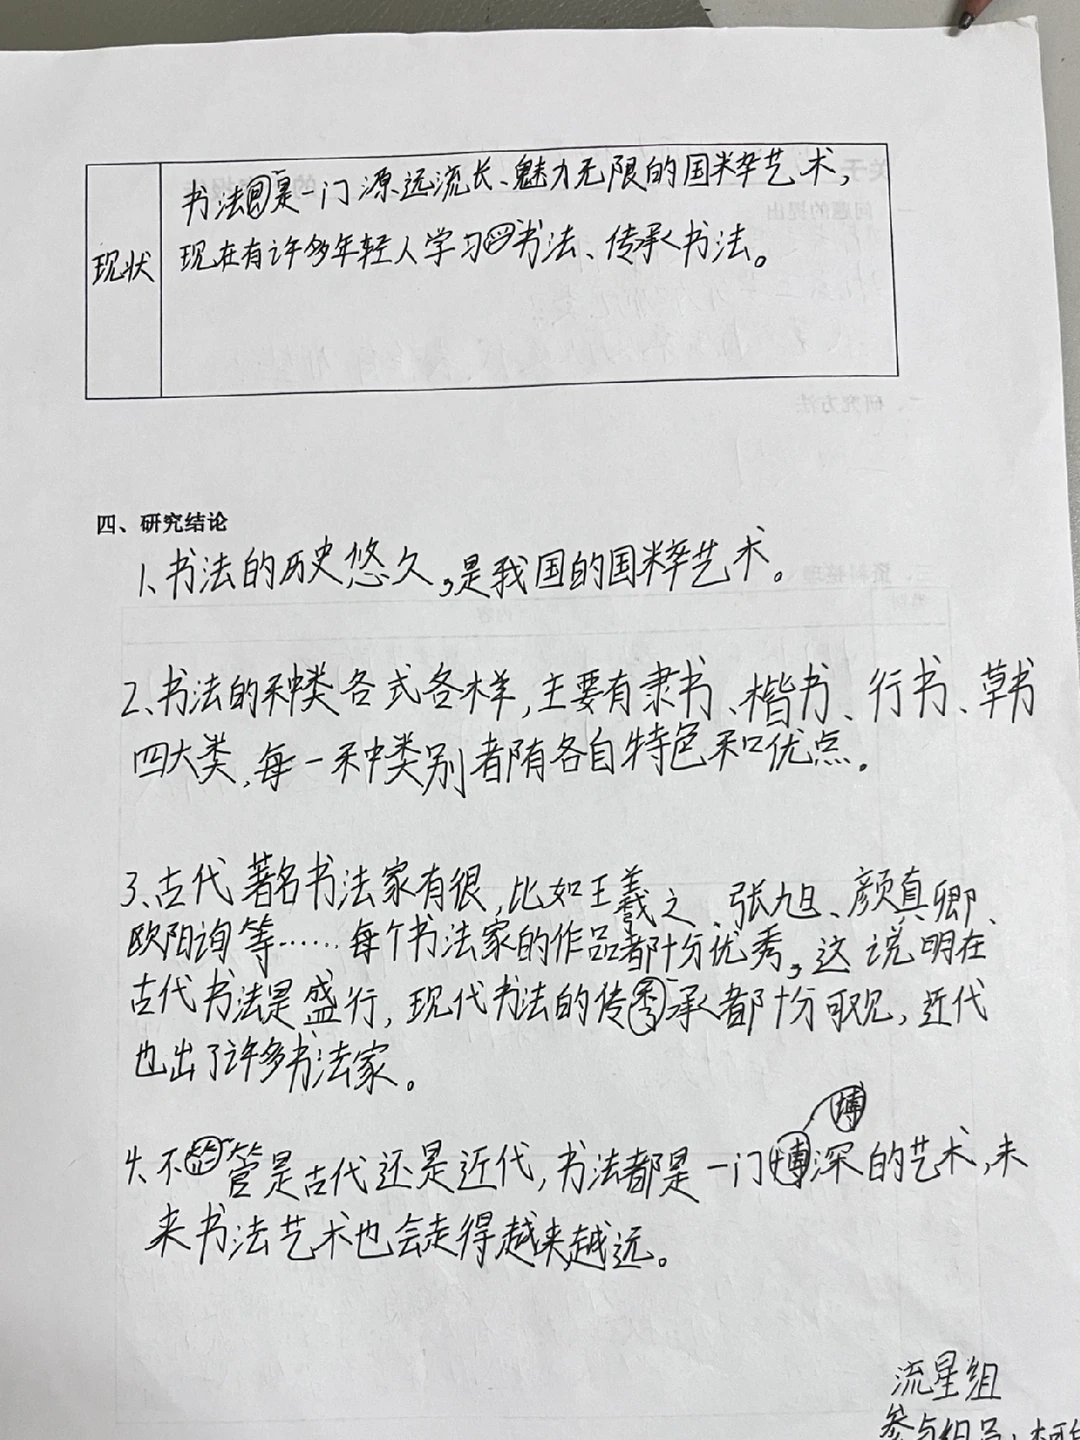 书法是一门源远流长、魅力无限的国粹艺术，
现状
现在有许多年轻人学习书法、传承书法。
四、研究结论
1、书法的历史悠久，是我国的国粹艺术。
2、书法的种类各式各样，主要有隶书、楷书、行书、草书
四大类，每一种类别都有各自特色和优点。
3、古代著名书法家有很，比如王羲之、张旭、颜真卿、
欧阳询等……每个书法家的作品都十分优秀，这说明在
古代书法是盛行，现代书法的传承都十分可观，近代
也出了许多书法家。
4、不管是古代还是近代，书法都是一门博深的艺术，未
来书法艺术也会走得越来越远。
流星组